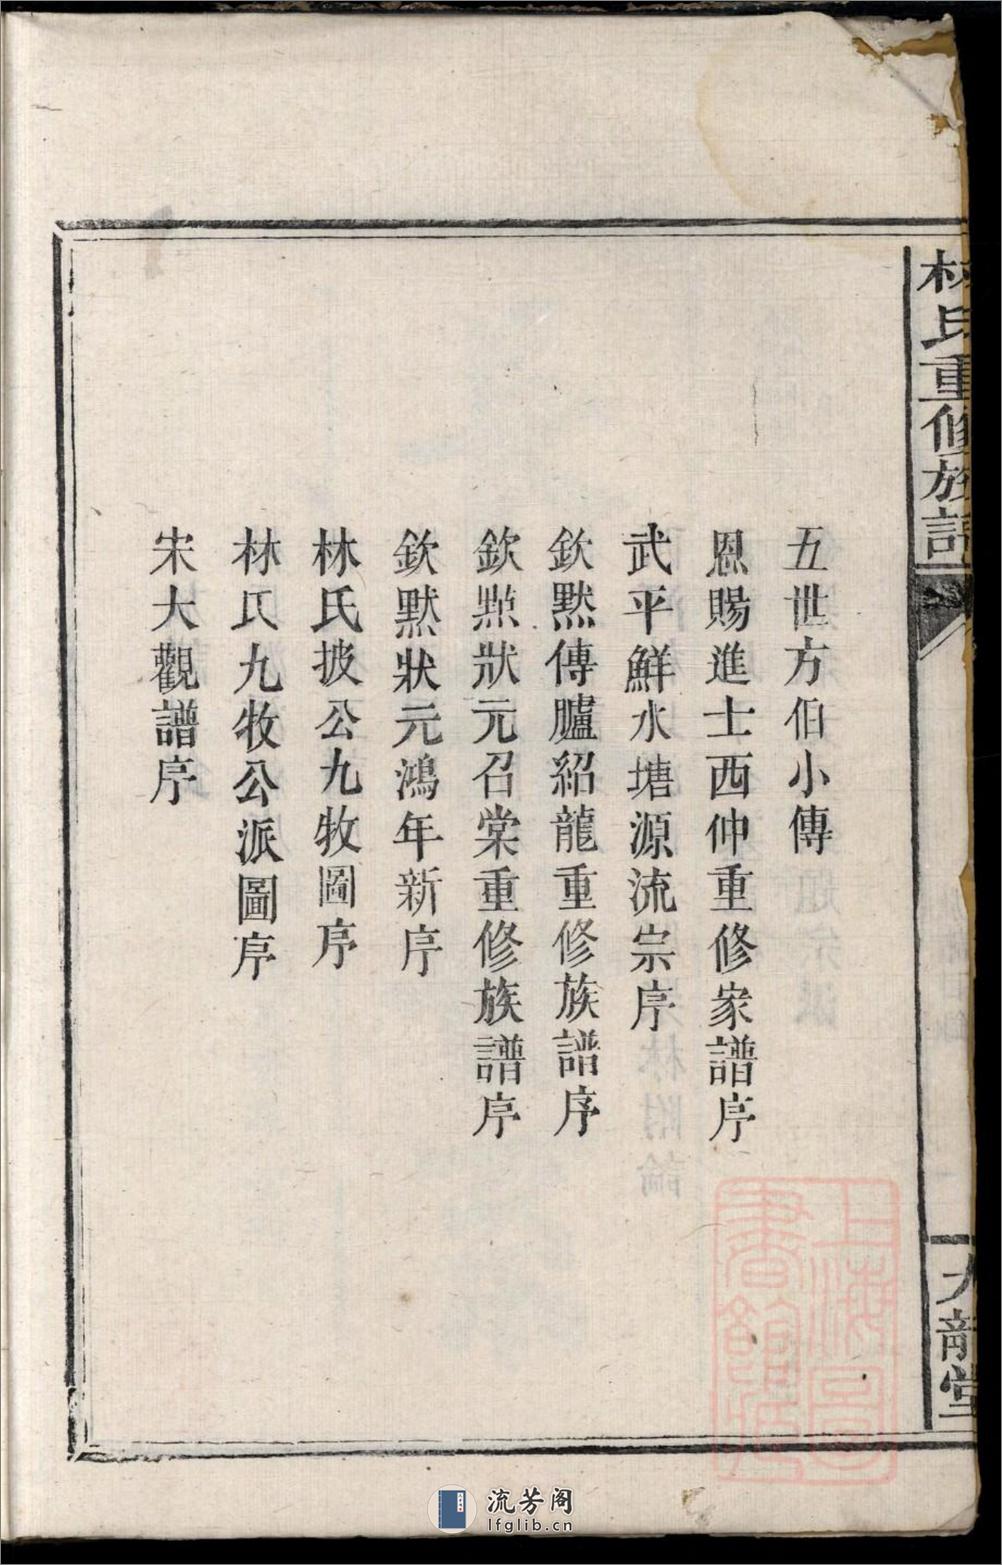 林氏重修族譜
九龍堂
五世方伯小傳
恩賜進士西仲重修家譜序
武平鮮水塘源流宗序
欽點傳臚紹龍重修族譜序
欽點狀元召棠重修族譜序
欽點狀元鴻年新序
林氏披公九牧圖序
林氏九牧公派圖序
宋大觀譜序
上海圖書館藏
流芳阁
lfglib.cn